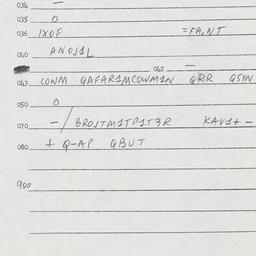 034 —
035 O
036 IXOF =FAINT
040 ANOJ1L
042 —
043 COWM QAFAR1MCOWM1N QRR QSYN
050 O
070 —/BROJTM1TP1T3R KAV1+-
080 + Q-AP QBUT
900